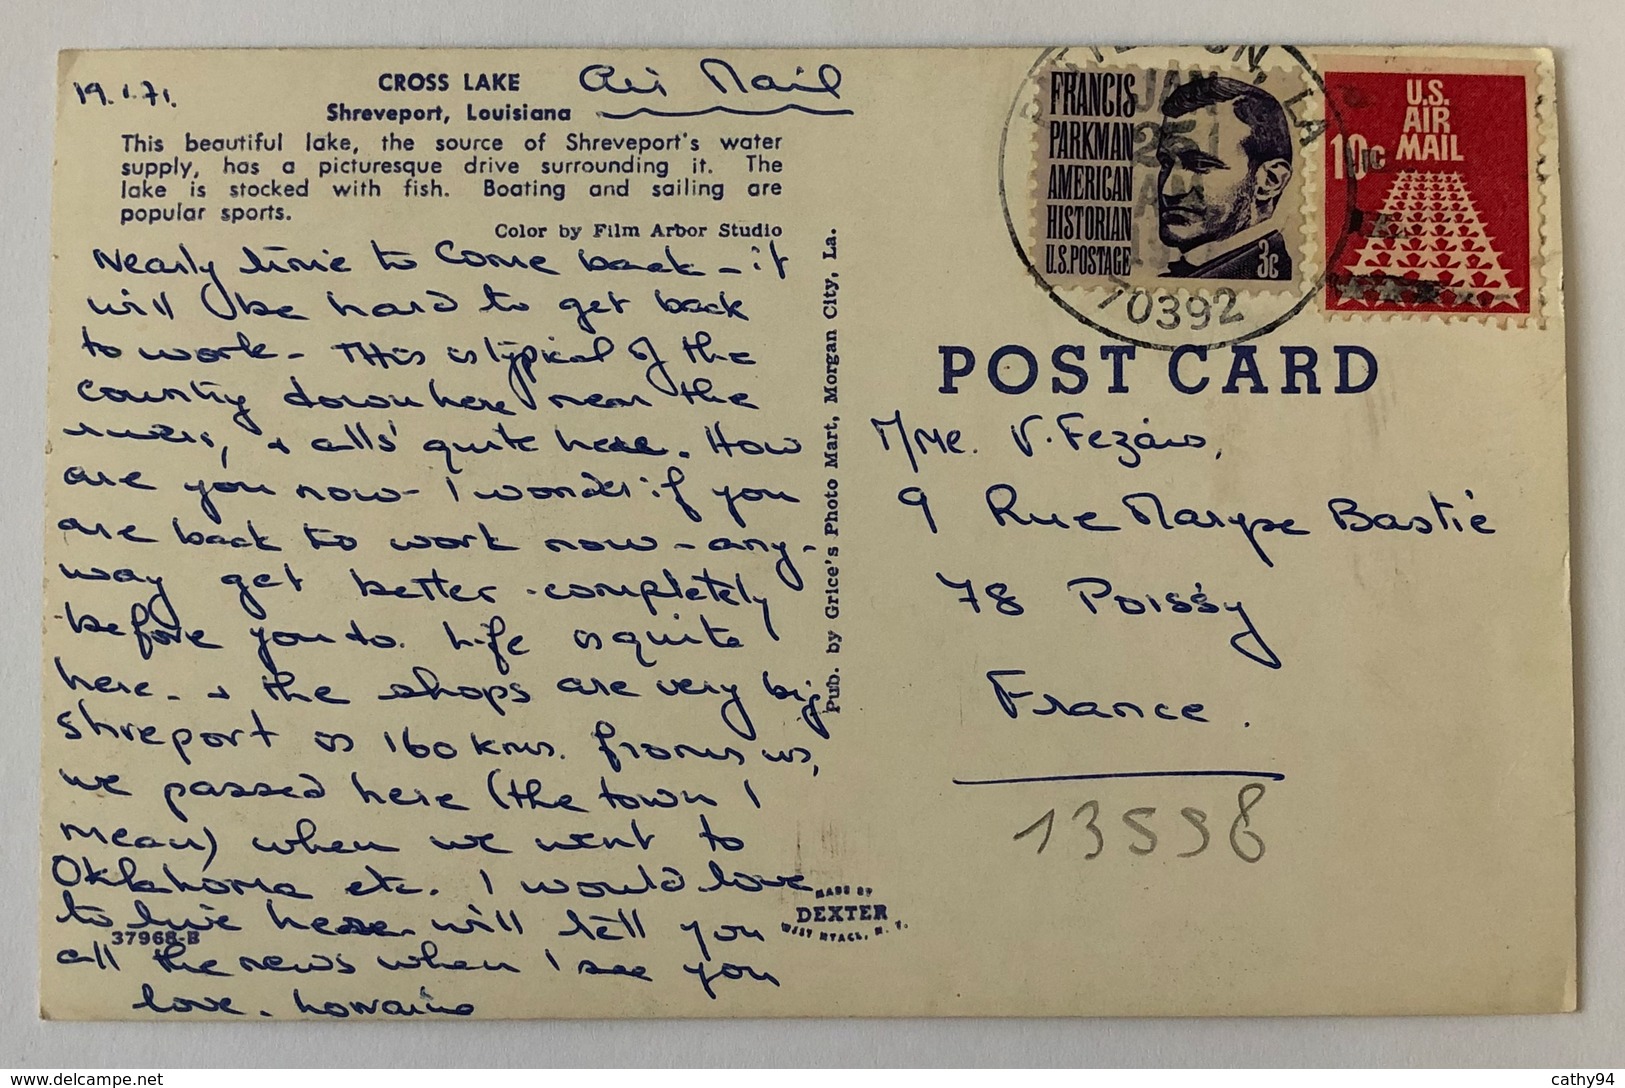 19.1.71.
CROSS LAKE
Air Mail
Shreveport, Louisiana
This beautiful lake, the source of Shreveport's water
supply, has a picturesque drive surrounding it. The
lake is stocked with fish. Boating and sailing are
popular sports.
Color by Film Arbor Studio
Nearly time to come back - it
will be hard to get back
to work - This is typical of the
country down here near the
rivers, & alls quite here. How
are you now - I wonder if you
are back to work now - any-
way get better completely
before you do. Life is quite
here - & the shops are very big
Shreport is 160 kms. from us,
we passed here (the town I
mean) when we went to
Oklahoma etc. I would love
to live here will tell you
all the news when I see you
love. Lorraine
37968-B
Pub. by Grice's Photo Mart, Morgan City, La.
MADE BY
DEXTER
WEST NYACK, N. Y.
FRANCIS
PARKMAN
AMERICAN
HISTORIAN
U.S. POSTAGE
3c
JAN
25
AM
LA
70392
U.S.
AIR
MAIL
10c
POST CARD
M/Me. V.
9 Rue Maryse Bastié
78 Poissy
France.
13598
cathy94